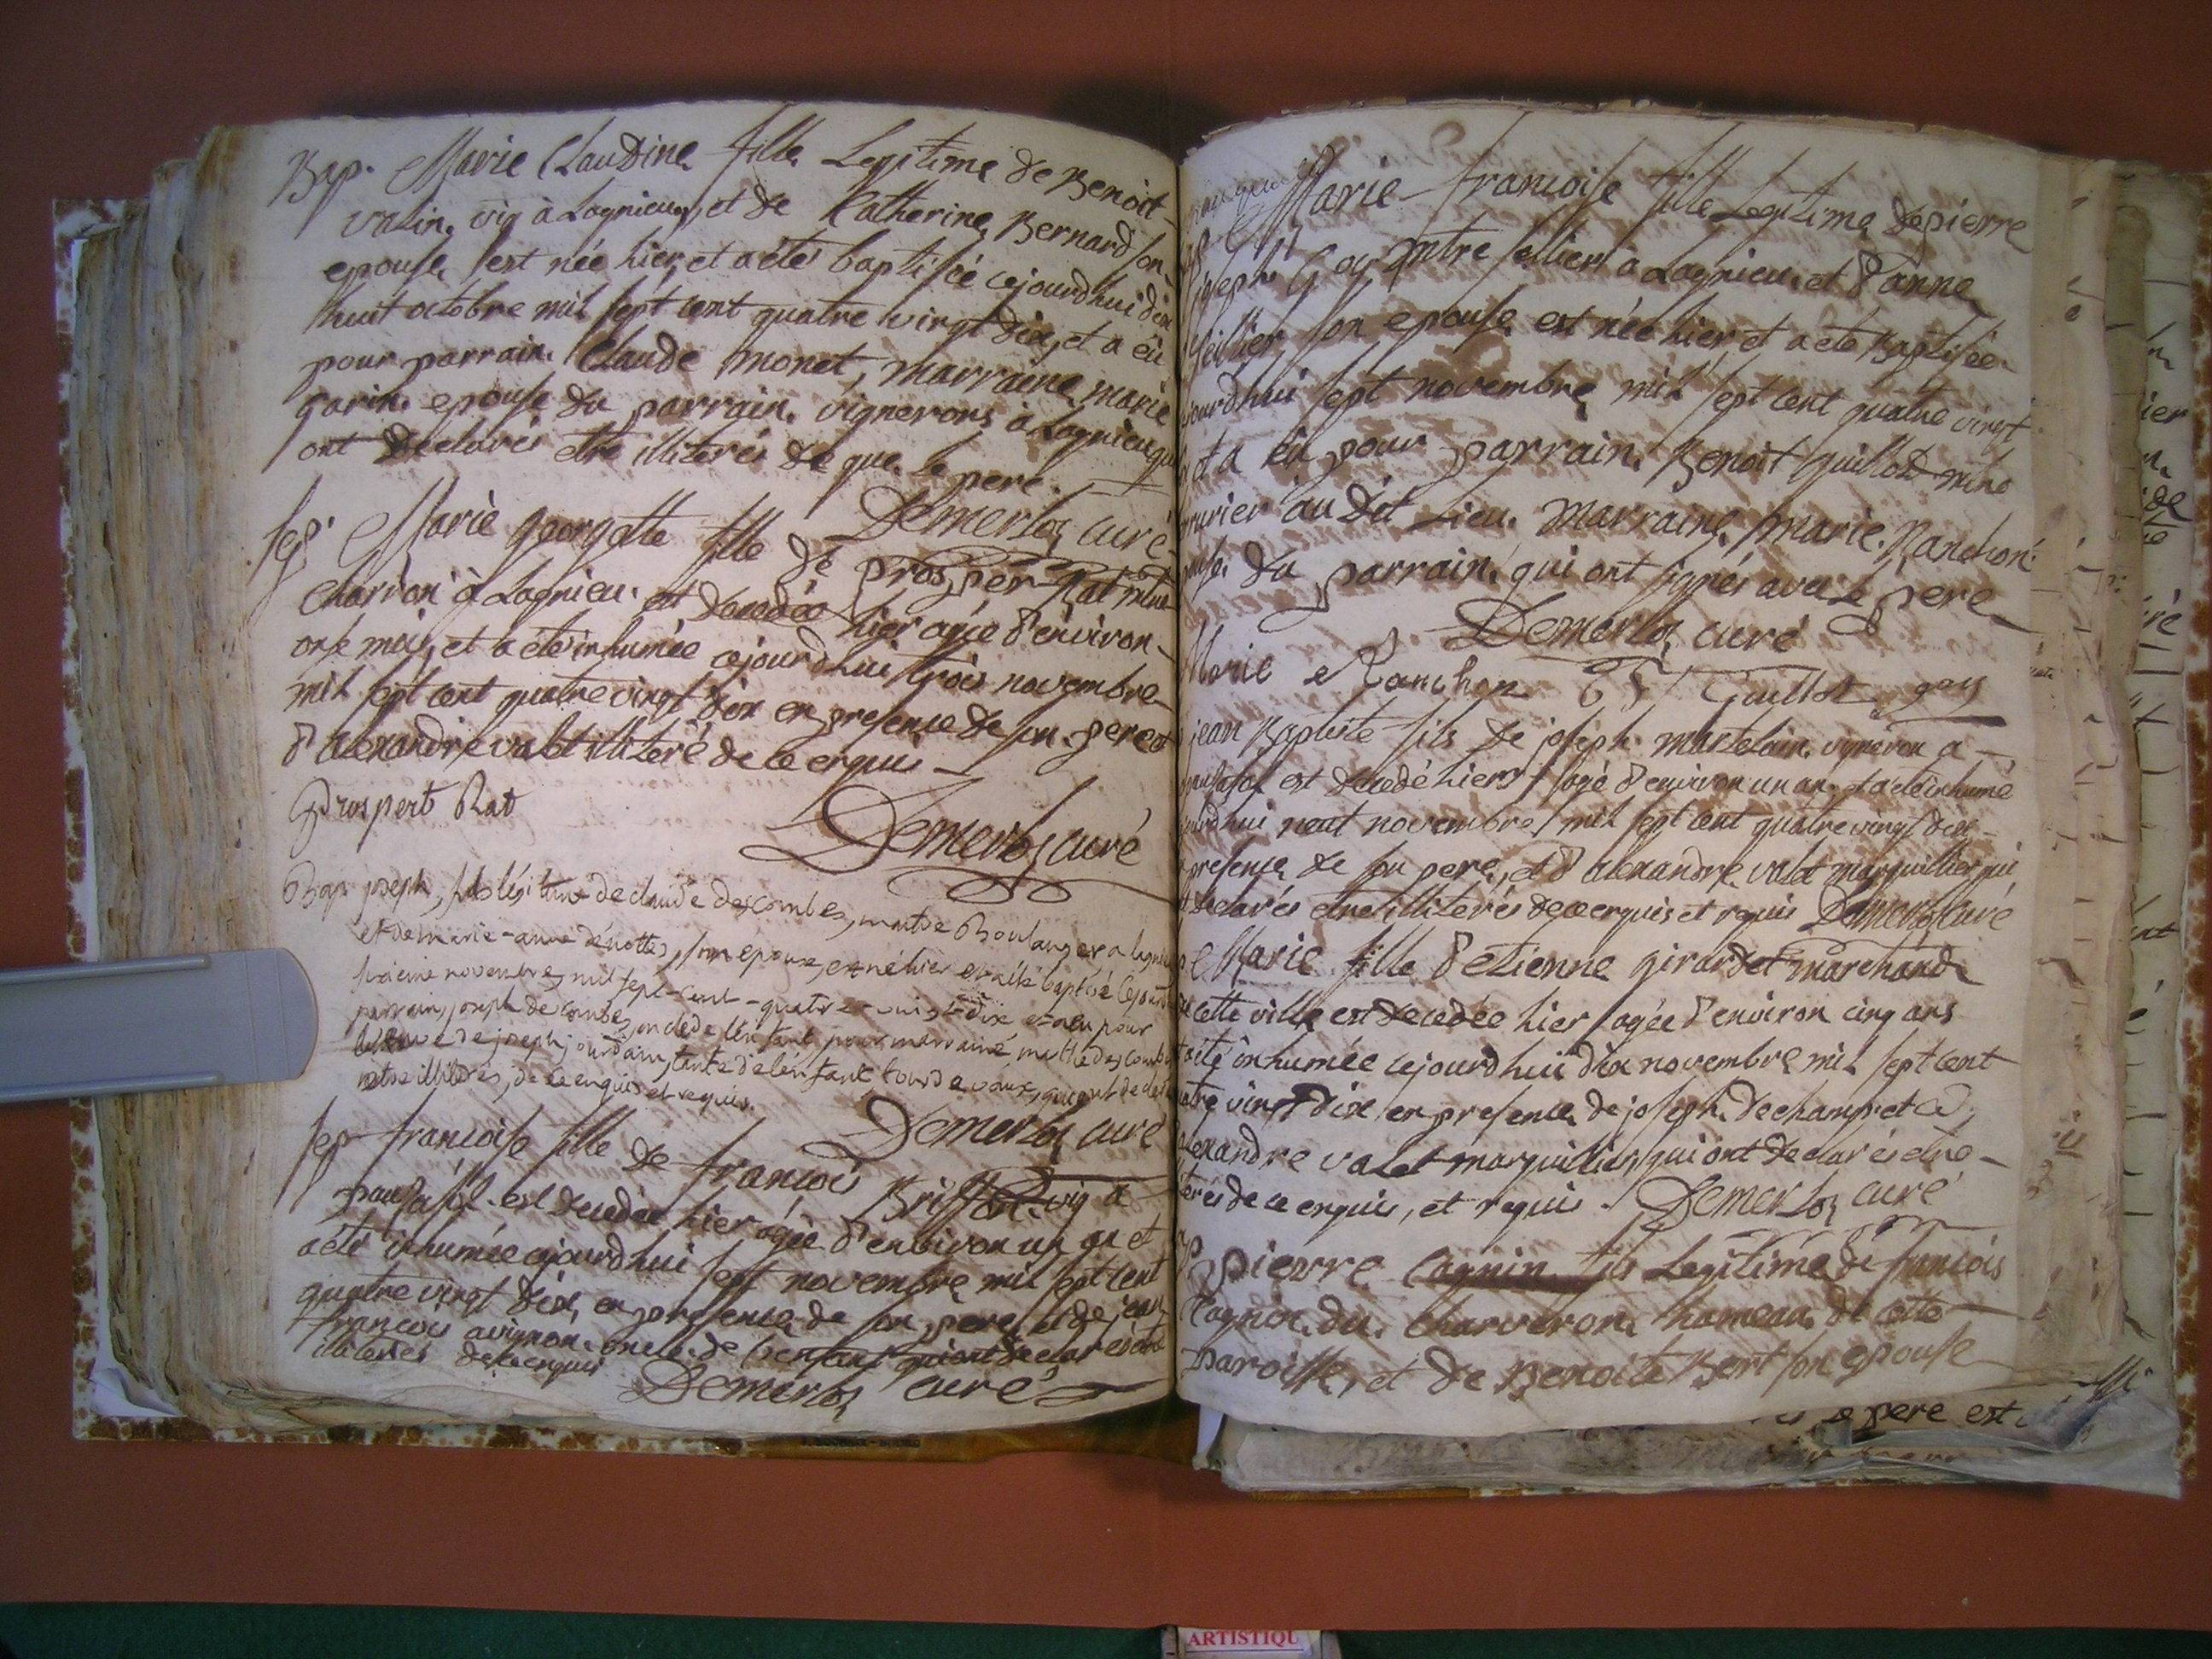 Bap. Marie Claudine fille Legitime de Benoit
vatin. vig à Lagnieu, et de Catherine Bernard son
epouse est née hier, et a été baptisée cejourdhui dix
huit octobre mil sept cent quatre vingt dix, et a êu
pour parrain. Claude monet, marraine marie
garin. epouse du parrain. vignerons a Lagnieu qui
ont declarés etre illiterés de que le pere.
Demerloz curé
sep. Marie georgette fille de prosper Rat mtre
charron à Lagnieu. est decedée hier agée d'environ
onze mois, et a été inhumée cejourdhui trois novembre
mil sept cent quatre vingt dix en presence de son pere et
d'alexandre valet illiteré de ce enquis
Prospert Rat
Demerloz curé
Bap joseph, fils légitime de claude descombes, maitre Boulanger a lagnieu
et de marie-anne dénottes, son epouse, est né hier et a été baptisé cejourd
novembre mil sept-cent-quatre-vingt-dix et a eu pour
parrain joseph decombes, oncle de l'enfant, pour marraine marthe descombes
de joseph jourdain, tante de l'enfant, qui ont declaré
etre illiterés, de ce enquis et requis.
Demerloz curé
sep francoise fille de francois Briffod. vig a
est decedée hier agée d'environ un an et
a été inhumée cejourdhui sept novembre mil sept cent
quatre vingt dix, en presence de son pere et de jean
francois avignon. oncle de l'enfant qui ont declarés etre
illiterés de ce enquis
Demerloz curé
Marie francoise fille Legitime de pierre
joseph Goy mtre sellier a Lagnieu. et d'anne
son epouse est née hier et a été Baptisée
ejourdhui sept novembre mil sept cent quatre vingt
et a êu pour parrain. Benoit Guillot mtre
au dit Lieu. Marraine marie. Ranchon
du parrain. qui ont signés avec Le pere
Demerloz curé
Marie Ranchon Guillot goy
jean Baptiste fils de joseph. martelain. vigneron a
est decedé hier agé d'environ un an. et a été inhumé
ourdhui neuf novembre mil sept cent quatre vingt dix
presence de son pere, et d'alexandre valet marguillier qui
declarés etre illiterés de ce enquis et requis Demerloz curé
Marie fille d'etienne girardet marchand
cette ville est decedée hier agée d'environ cinq ans
été inhumée cejourdhui dix novembre mil sept cent
atre vingt dix en presence de joseph. dechamp et d
alexandre valet marguillier, qui ont declarés etre
terés de ce enquis, et requis. Demerloz curé
pierre Cagnin fils Legitime de francois
Cagnin. du. charveron. hameau de cette
Paroisse, et de Benoite Bert son epouse
pere est
ARTISTIQU